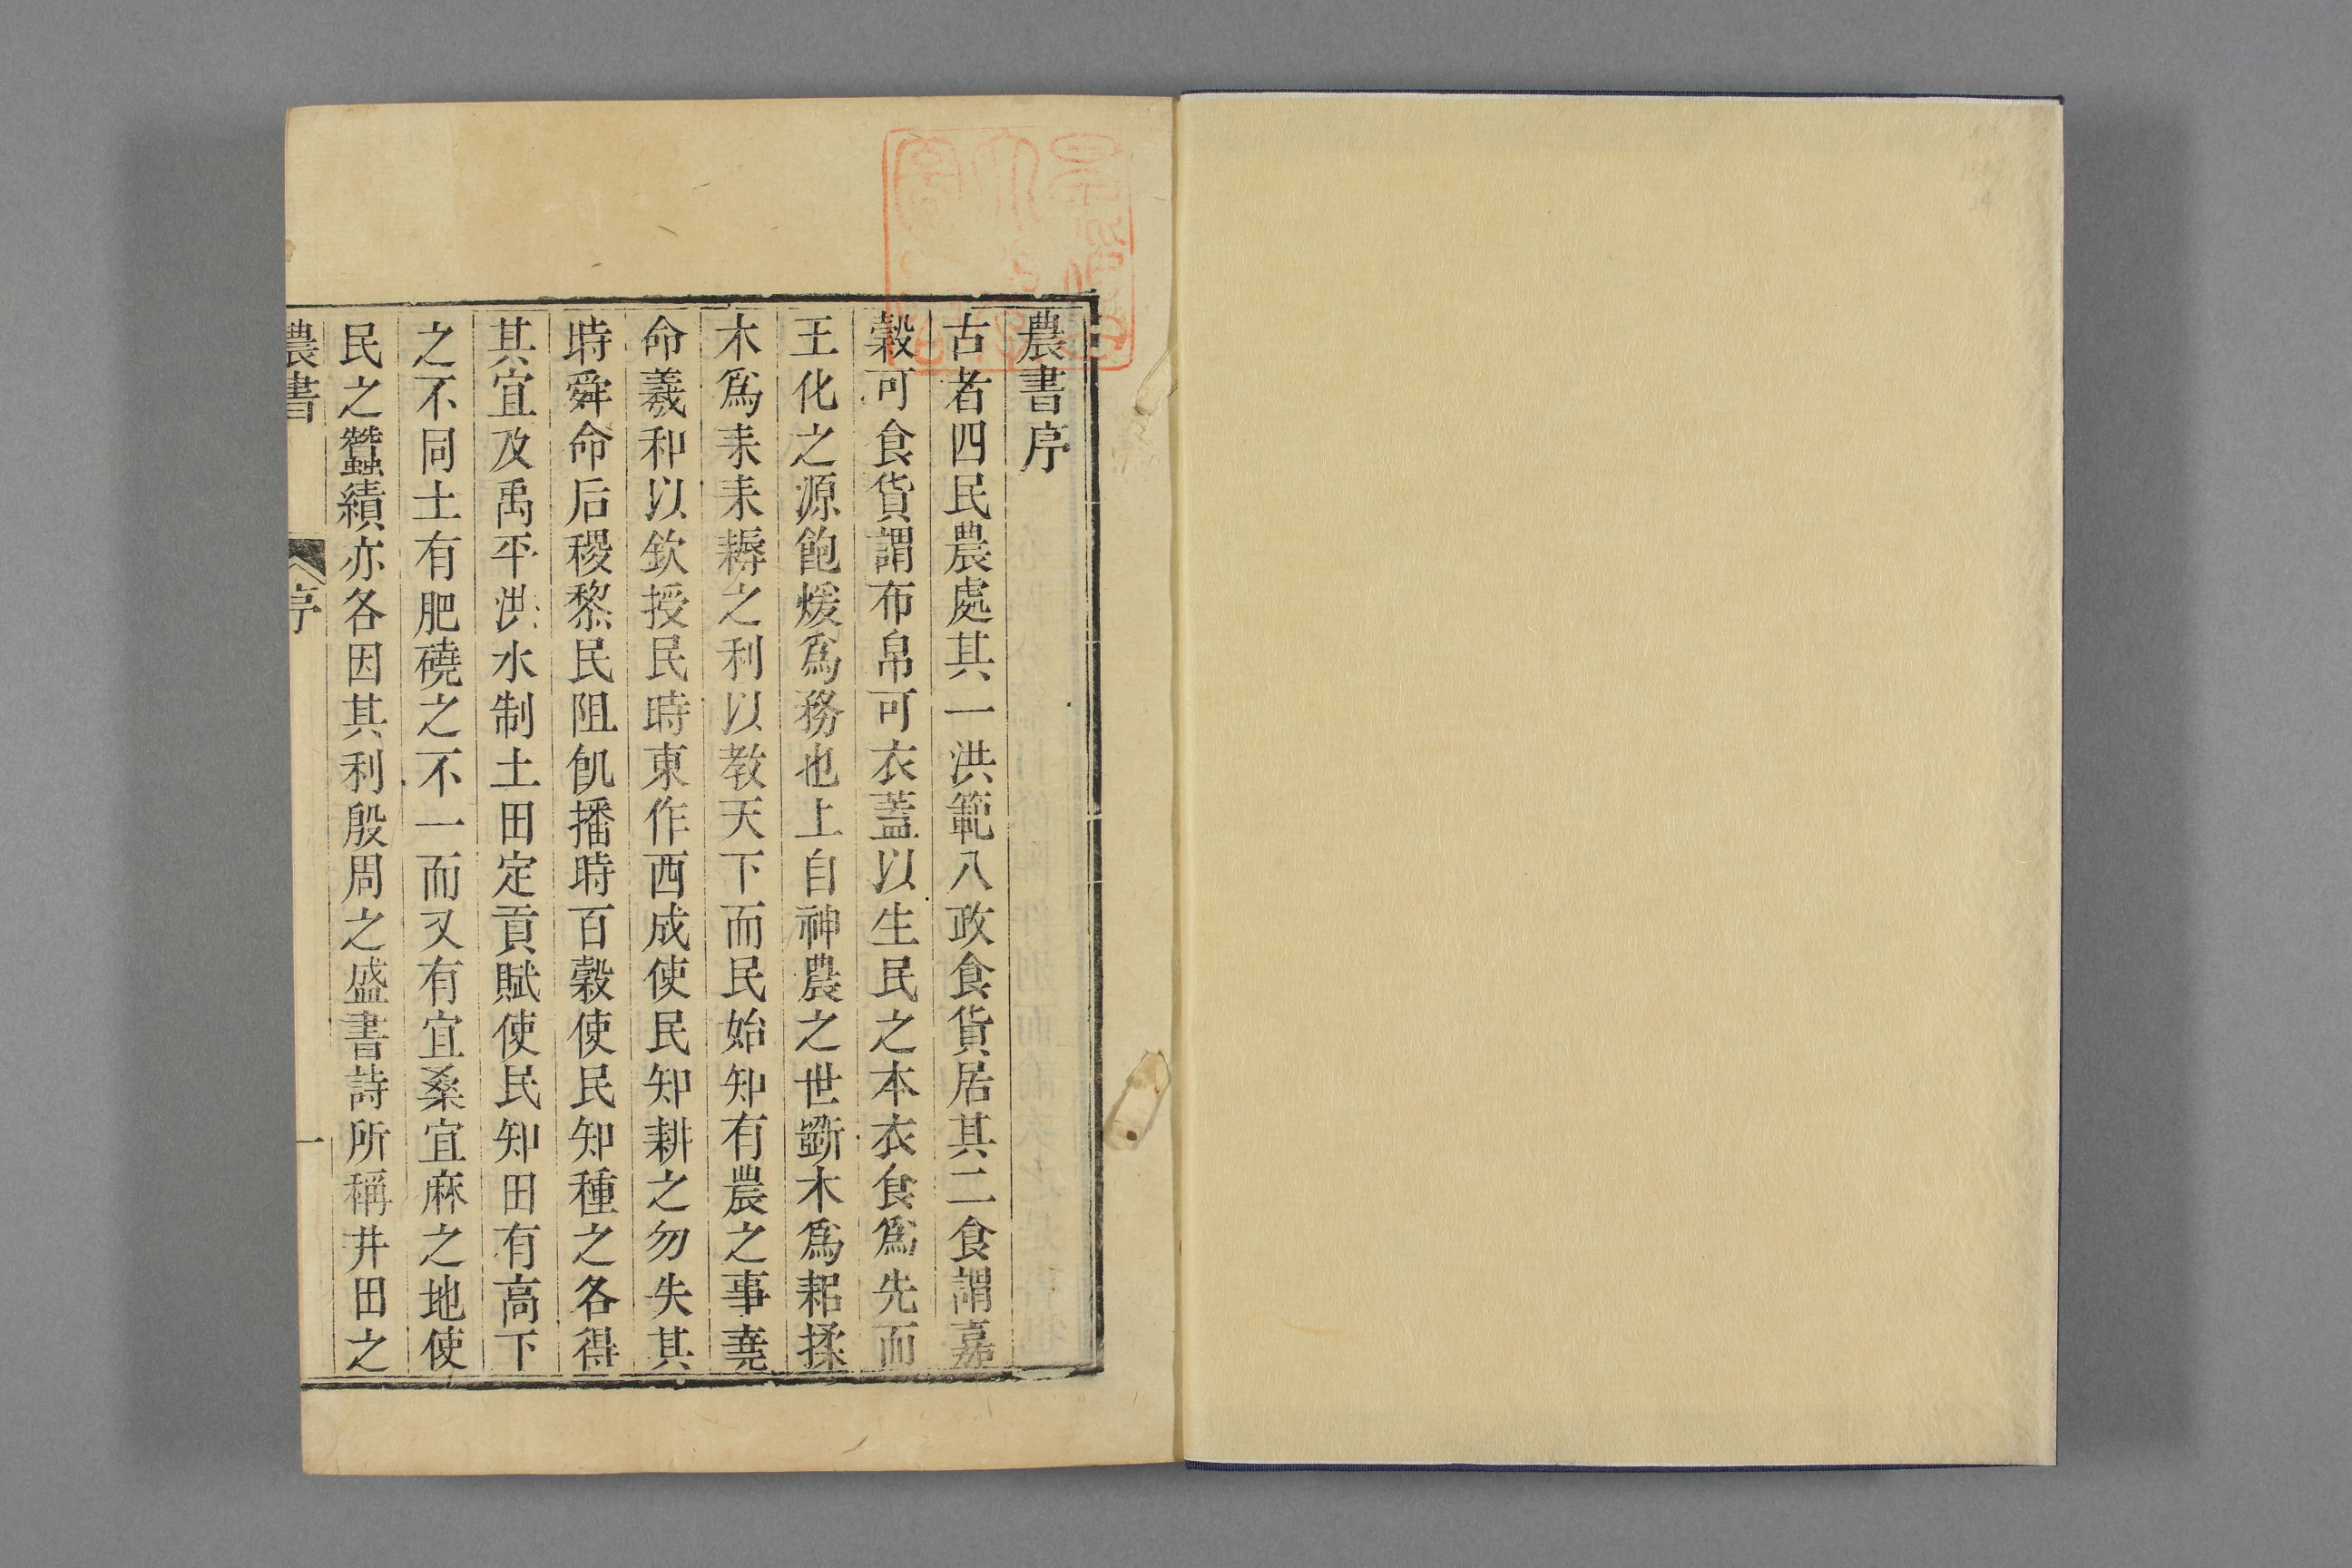 農書序
古者四民農處其一洪範八政食貨居其二食謂嘉
穀可食貨謂布帛可衣蓋以生民之本衣食爲先而
王化之源飽煖爲務也上自神農之世斲木爲耜揉
木爲耒耒耨之利以教天下而民始知有農之事堯
命羲和以欽授民時東作西成使民知耕之勿失其
時舜命后稷黎民阻飢播時百穀使民知種之各得
其宜及禹平洪水制土田定貢賦使民知田有高下
之不同土有肥磽之不一而又有宜桑宜麻之地使
民之蠶績亦各因其利殷周之盛書詩所稱井田之
農書 序 一